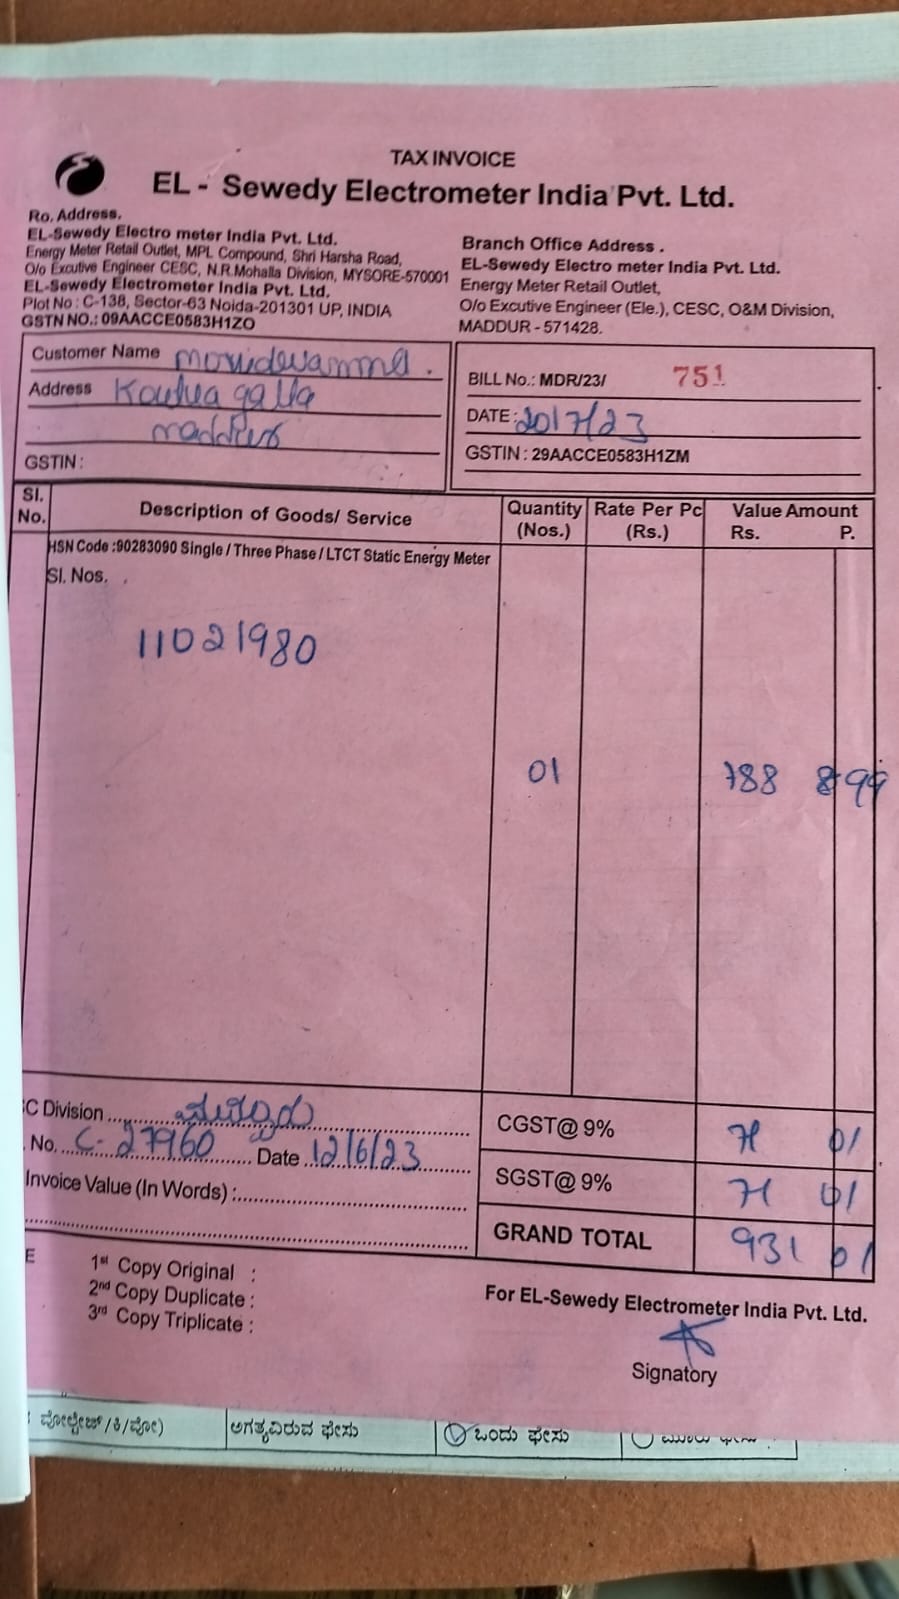 TAX INVOICE
EL - Sewedy Electrometer India Pvt. Ltd.
Ro. Address.
EL-Sewedy Electro meter India Pvt. Ltd.
Energy Meter Retail Outlet, MPL Compound, Shri Harsha Road,
O/o Excutive Engineer CESC, N.R.Mohalla Division, MYSORE-570001
EL-Sewedy Electrometer India Pvt. Ltd.
Plot No : C-138, Sector-63 Noida-201301 UP, INDIA
GSTN NO.: 09AACCE0583H1ZO
Branch Office Address .
EL-Sewedy Electro meter India Pvt. Ltd.
Energy Meter Retail Outlet,
O/o Excutive Engineer (Ele.), CESC, O&M Division,
MADDUR - 571428.
Customer Name
Address
GSTIN :
BILL No.: MDR/23/ 751
DATE : 20/7/23
GSTIN : 29AACCE0583H1ZM
Sl. No. Description of Goods/ Service Quantity (Nos.) Rate Per Pc (Rs.) Value Amount Rs. P.
HSN Code :90283090 Single / Three Phase / LTCT Static Energy Meter
Sl. Nos.
11021980
01 788 99
C Division ಮದ್ದೂರು
. No. C- 27960 Date 12/6/23
Invoice Value (In Words) :
CGST@ 9% 71 01
SGST@ 9% 71 01
GRAND TOTAL 931 01
E
1st Copy Original :
2nd Copy Duplicate :
3rd Copy Triplicate :
For EL-Sewedy Electrometer India Pvt. Ltd.
Signatory
ವೋಲ್ಟೇಜ್/ಕಿ/ವೋ) ಅಗತ್ಯವಿರುವ ಫೇಸು ಒಂದು ಫೇಸು